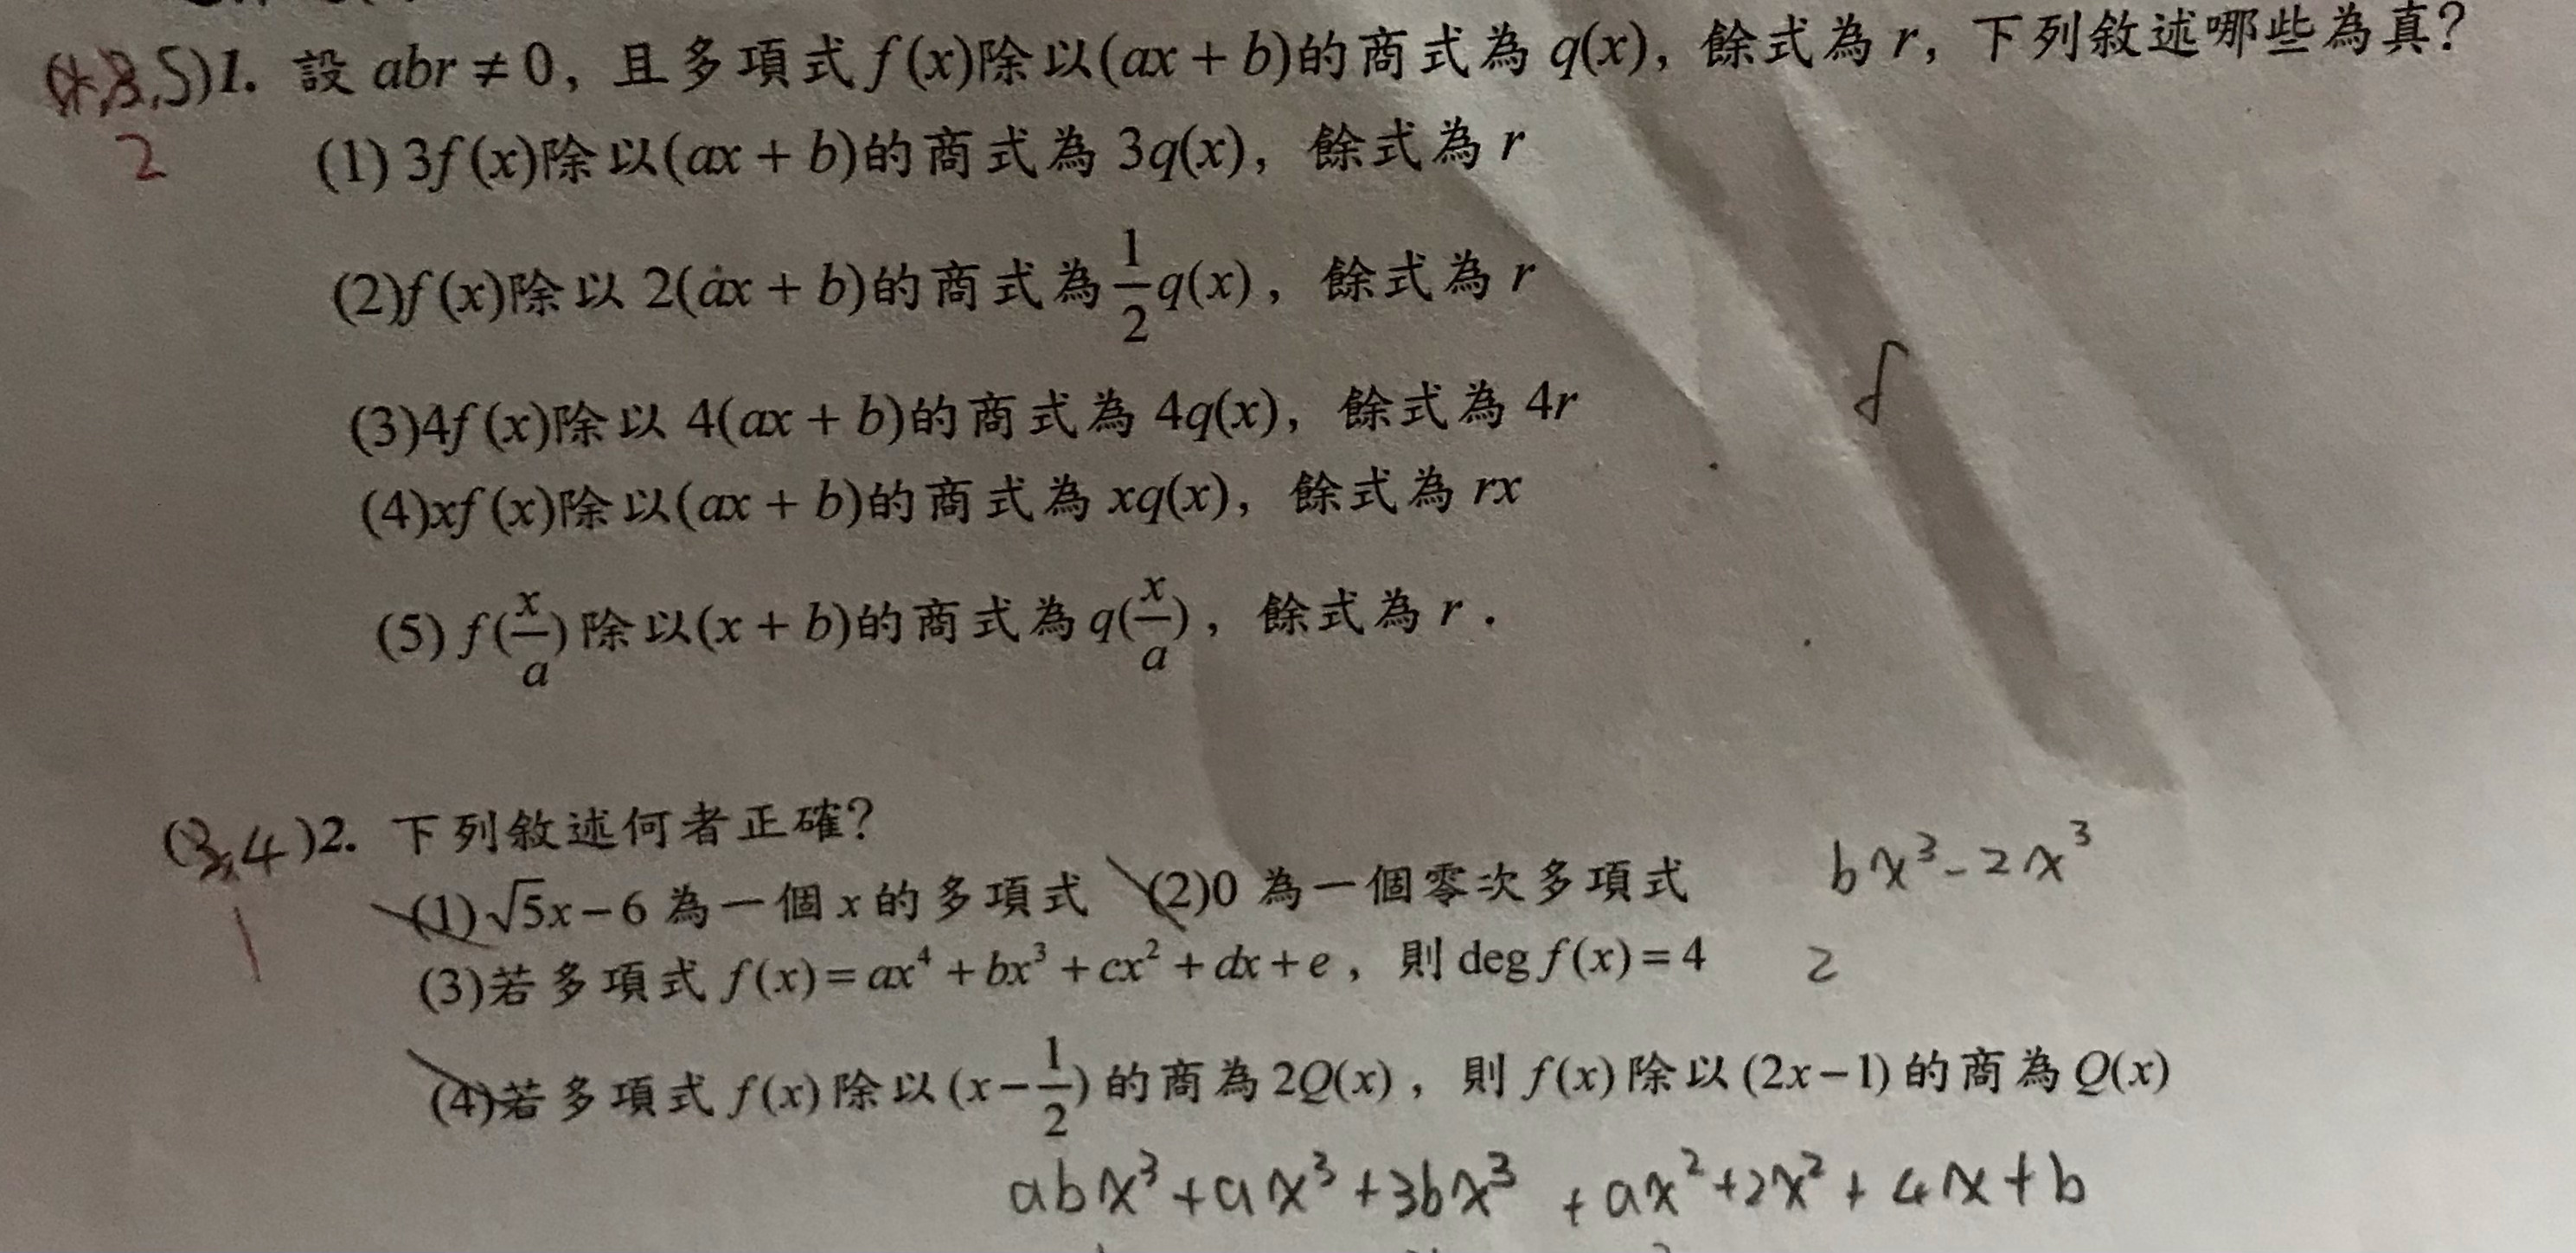 (4,3,5)1. 設 abr ≠ 0, 且多項式 f(x)除以(ax + b)的商式為 q(x), 餘式為 r, 下列敘述哪些為真?
2
(1) 3f(x)除以(ax + b)的商式為 3q(x), 餘式為 r
(2)f(x)除以 2(ax + b)的商式為 1/2 q(x), 餘式為 r
(3)4f(x)除以 4(ax + b)的商式為 4q(x), 餘式為 4r
(4)xf(x)除以(ax + b)的商式為 xq(x), 餘式為 rx
(5) f(x/a) 除以(x + b)的商式為 q(x/a), 餘式為 r.
(3,4)2. 下列敘述何者正確?
1
(1)√5x−6 為一個 x 的多項式 (2)0 為一個零次多項式
bx³-2x³
(3)若多項式 f(x)=ax⁴+bx³+cx²+dx+e, 則 deg f(x)=4
2
(4)若多項式 f(x) 除以 (x−1/2) 的商為 2Q(x), 則 f(x) 除以 (2x−1) 的商為 Q(x)
abx³+ax³+3bx³+ax²+2x²+4x+b